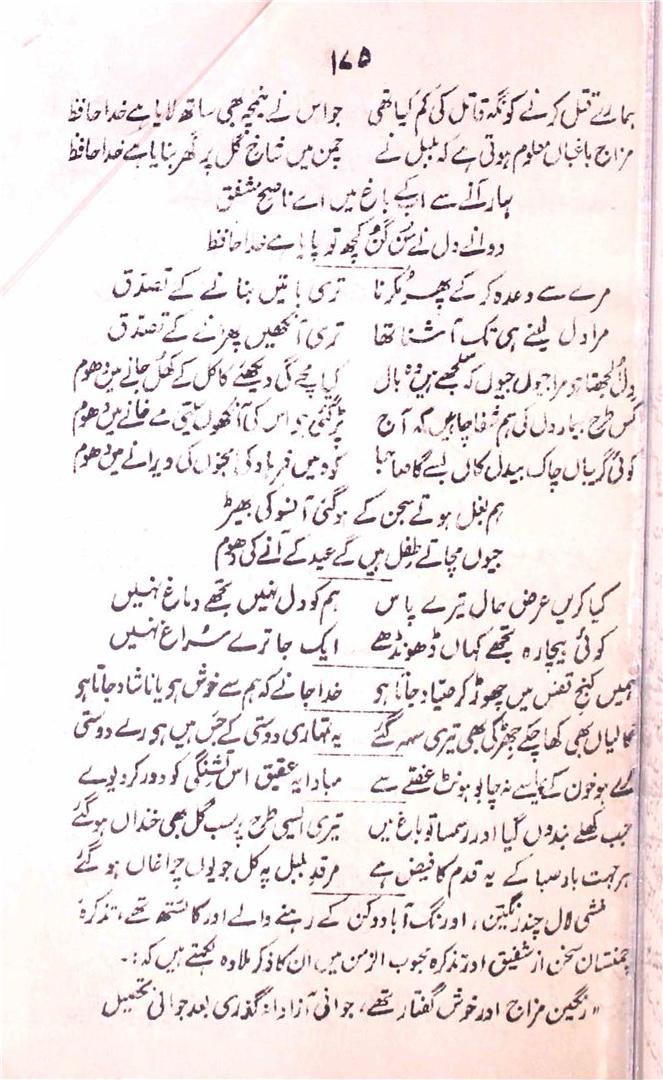 ۱۷۵
ہمارے قتل کرنے کو نگہ قاتل کی کم کیا تھی جو اس نے نیمچہ بھی ساتھ لایا ہے خدا حافظ
مزاج باغباں معلوم ہوتی ہے کہ بلبل نے چمن میں شاخ گل پر گھر بنایا ہے خدا حافظ
بہار آنے سے اب کے باغ میں اے ناصح مشفق
دوانے دل نے سن گن کچھ تو پایا ہے خدا حافظ
مرے سے وعدہ کر کے پھر مکرنا تری باتیں بنانے کے تصدق
مرا دل لینے ہی تک آشنا تھا تری آنکھیں پھرانے کے تصدق
دل الجھتا ہو مرا جیوں جیوں کہ سلجھے ہیں وہ بال کیا مچے گی دیکھئے کاکل کے کھل جانے میں دھوم
کس طرح بیمار دل کی ہم شفا چاہیں کہ آج پڑ گئی ہو اس کی آنکھوں سیتی مے خانے میں دھوم
کوئی گریباں چاک بیدل کاں بسے گا صاحبا کوہ میں فرہاد کی مجنوں کی ویرانے میں دھوم
ہم بغل ہوتے سجن کے ہو گئی آنسو کی بھیڑ
جیوں مچاتے طفل ہیں گے عید کے آنے کی دھوم
کیا کریں عرض حال تیرے پاس ہم کو دل نہیں تجھے دماغ نہیں
کوئی بیچارہ تجھے کہاں ڈھونڈھے ایک جا ترے سراغ نہیں
ہمیں کنج قفس میں چھوڑ کر صیاد جاتا ہو خدا جانے کہ ہم سے خوش ہو یا ناشاد جاتا ہو
گالیاں بھی کھا چکے جھڑکی بھی تیری سہہ گئے یہ تمہاری دوستی کے جس میں ہو رے دوستی
ہو خون کے پیاسے نہ چابو ہونٹ غصے سے مبادا یہ عقیق اس تشنگی کو دور کر دیوے
جب کھلے بندوں گیا اور رمسا تو باغ میں تیری ایسی طرح پر سب گل بھی خنداں ہو گئے
ہر جہت باد صبا کے یہ قدم کا فیض ہے مرقد بلبل پہ کل جو یوں چراغاں ہو گئے
منشی لال چند رنگین، اورنگ آباد دکن کے رہنے والے اور کائستھ تھے، تذکرہ
چمنستان سخن از شفیق اور تذکرہ محبوب الزمن میں ان کا ذکر ملا وہ لکھتے ہیں کہ:۔
"رنگین مزاج اور خوش گفتار تھے، جوانی آزادانہ گذری بعد جوانی تحصیل